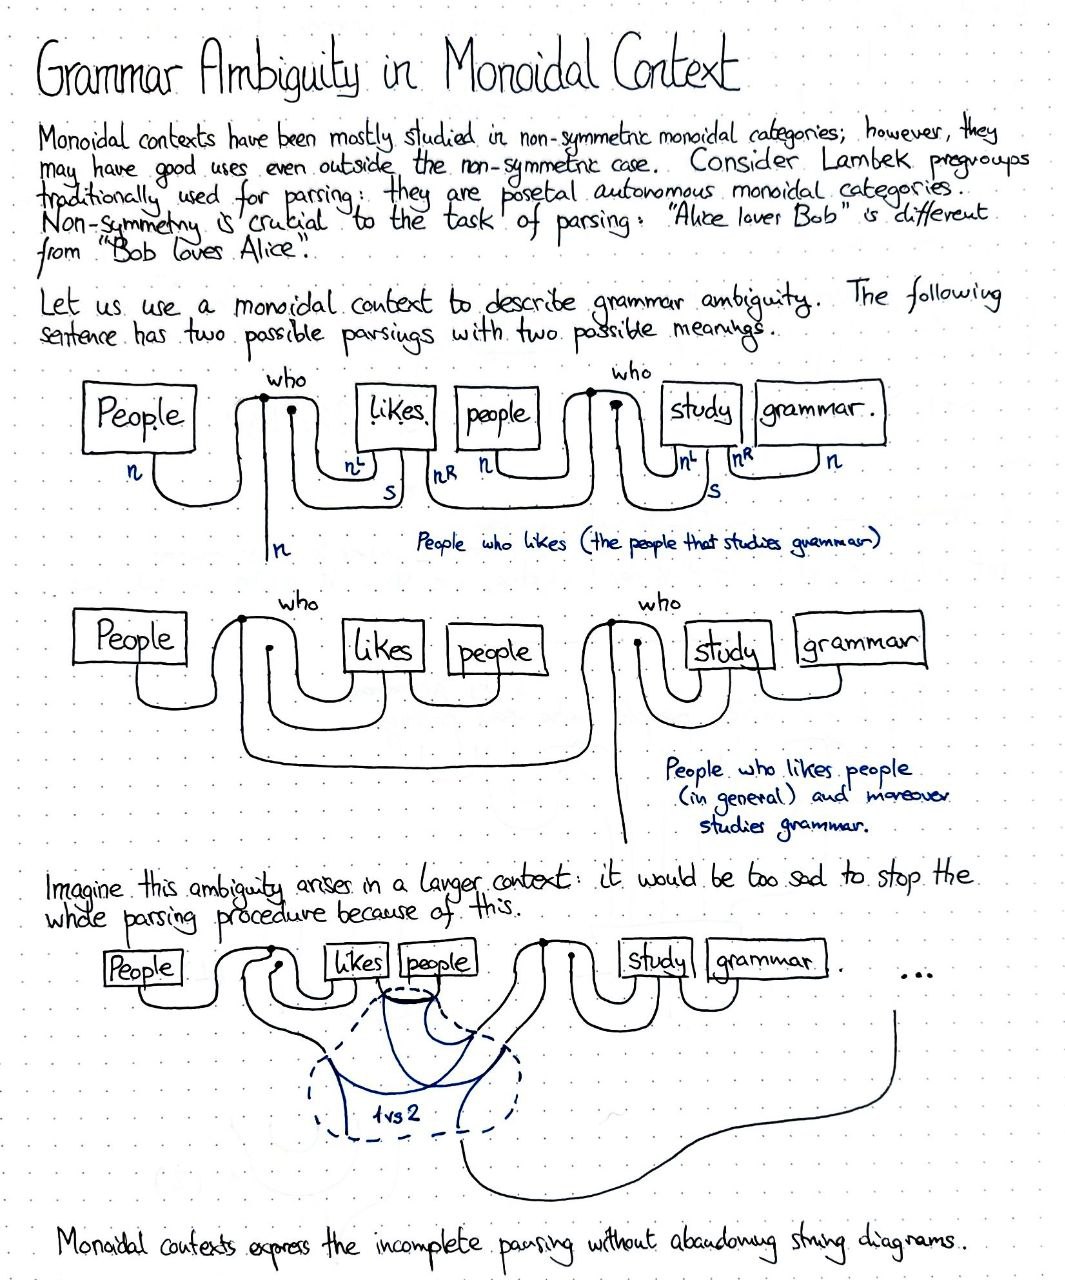 Grammar Ambiguity in Monoidal Context
Monoidal contexts have been mostly studied in non-symmetric monoidal categories; however, they
may have good uses even outside the non-symmetric case. Consider Lambek pregroups
traditionally used for parsing: they are posetal autonomous monoidal categories.
Non-symmetry is crucial to the task of parsing: "Alice loves Bob" is different
from "Bob loves Alice".
Let us use a monoidal context to describe grammar ambiguity. The following
sentence has two possible parsings with two possible meanings.
who who
People likes people study grammar.
n nL s nR n nL s nR n
n
People who likes (the people that studies grammar)
who who
People likes people study grammar
People who likes people
(in general) and moreover
studies grammar.
Imagine this ambiguity arises in a larger context: it would be too sad to stop the
whole parsing procedure because of this.
People likes people study grammar . ...
1 vs 2
Monoidal contexts express the incomplete parsing without abandoning string diagrams.